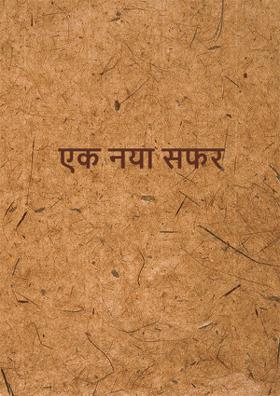 एक नया सफर